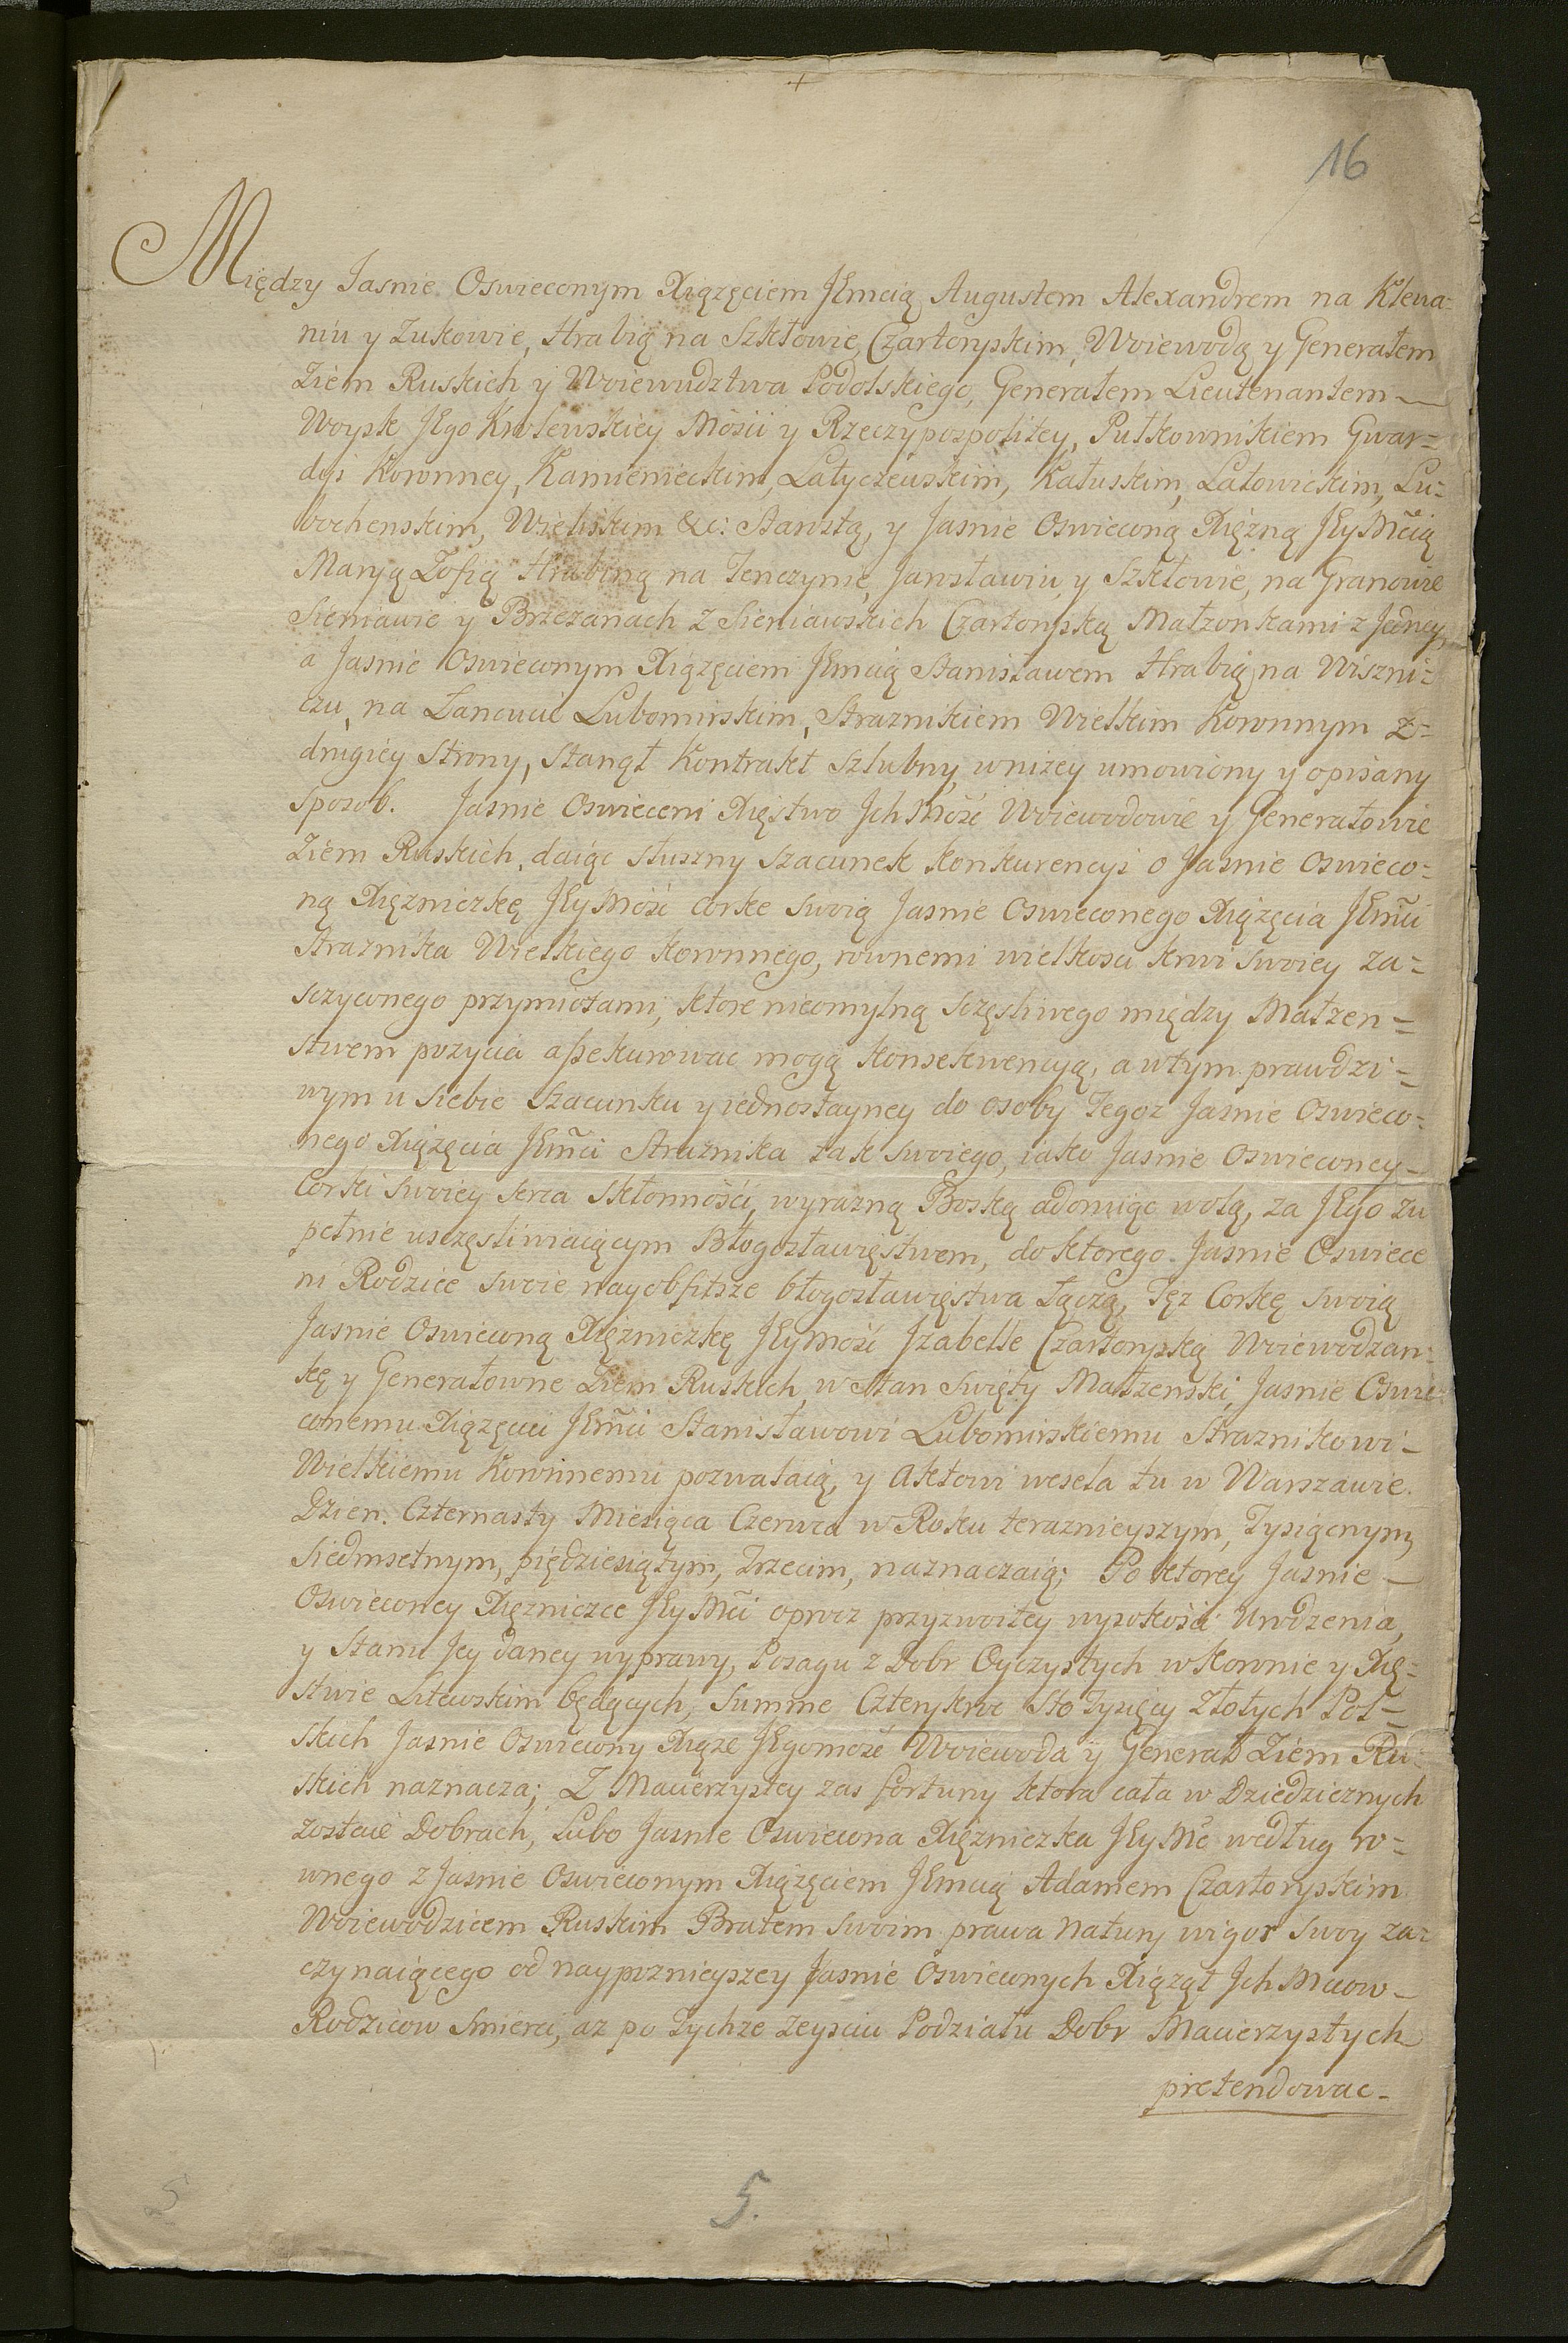 16
Między Jasnie Oswieconym Xiązęciem JEmcią Augustem Alexandrem na Klewa=
niu y Zukowie, Hrabią na Szkłowie, Czartoryskim, Woiewodą y Generałem
Ziem Ruskich y Woiewudztwa Podolskiego, Generałem Lieutenantem —
Woysk JEgo Krolewskiey Mości y Rzeczypospolitey, Pułkownikiem Gwar=
dyi Koronney, Kamienieckim, Latyczewskim, Kałuskim, Latowickim, Lu=
bochenskim, Wieliskim &c: Starostą, y Jasnie Oswieconą Xięzną JEyMcią
Maryą Zofią Hrabiną na Tenczynie, Jarosławiu, y Szkłowie, na Granowie
Sieniawie y Brzezanach z Sieniawskich Czartoryską Małzonkami z Jedney,
a Jasnie Oswieconym Xiązęciem JEmcią Stanisławem Hrabią na Wiszni=
czu, na Łancucie Lubomirskim, Straznikiem Wielkim Koronnym z=
drugiey Strony, Stanął Kontrakt Szlubny wnizey umowiony y opisany
Sposob. Jasnie Oswieceni Xięstwo Jch Mość Woiewodowie y Generałowie
Ziem Ruskich, daiąc słuszny szacunek konkurencyi o Jasnie Oswieco=
ną Xięzniczkę JEyMość corke swoią Jasnie Oswieconego Xiązęcia JEmci
Straznika Wielkiego Koronnego, rownemi wielkosci krwi swoiey za=
sczyconego przymiotami, ktore nieomylną sczęsliwego między Małzen=
stwem pozycia assekurowac mogą konsekwencyą, a w tym prawdzi=
wym u siebie szacunku y iednostayney do osoby Tegoz Jasnie Oswieco=
nego Xiązęcia JEmci Straznika tak swoiego, iako Jasnie Oswieconey —
Corki swoiey serca skłonności, wyrazną Boską adoruiąc wolą, za JEgo zu
pełnie usczęsliwiaiącym Błogosławięstwem, do ktorego Jasnie Oswiece
ni Rodzice swoie nayobfitsze błogosławięstwa łączą, Tęz Corkę swoią
Jasnie Oswieconą Xięzniczkę JEyMość Jzabelle Czartoryską Woiewodzan=
kę y Generałowne Ziem Ruskich, w Stan Swięty Małzenski, Jasnie Oswie=
conemu Xiązęciu JEmci Stanisławowi Lubomirskiemu Straznikowi —
Wielkiemu Koronnemu pozwalaią, y Aktowi wesela tu w Warszawie.
Dzien. Czternasty Miesiąca Czerwca w Roku teraznieyszym, Tysiącnym,
Siedmsetnym, pięдziesiątym, Trzecim, naznaczaią; Po ktorey Jasnie —
Oswieconey Xięzniczce JEyMci oprocz przyzwoitey wysokości Urodzenia,
y Stanu Jey daney wyprawy, Posagu z Dobr Oyczystych w Koronie y Xię=
stwie Litewskim będących, Summe Czterykroc Sto Tysięcy Złotych Pol=
skich Jasnie Oswiecony Xiąze JEgomość Woiewoda y Generał Ziem Ru=
skich naznacza; Z Macierzystey zas fortuny ktora cała w Dziedzicznych
zostaie Dobrach, Lubo Jasnie Oswiecona Xięzniczka JEyMc według ro=
wnego z Jasnie Oswieconym Xiązęciem JEmcią Adamem Czartoryskim
Woiewodzicem Ruskim Bratem swoim prawa Natury wigor swoy za=
czynaiącego od naypoznieyszey Jasnie Oswieconych Xiąząt Jch Mciow —
Rodzicow Smierci, az po Tychze zeysciu Podziału Dobr Macierzystych
pretendowac =
5.
5